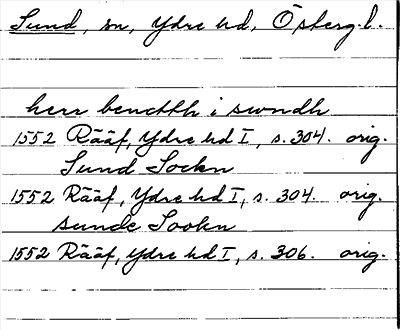 Sund, sn, Ydre hd, Östergl.
herr benctth i swndh
1552 Rääf, Ydre hd I, s. 304. orig.
Sund Sockn
1552 Rääf, Ydre hd I, s. 304. orig.
sunde Sockn
1552 Rääf, Ydre hd I, s. 306. orig.